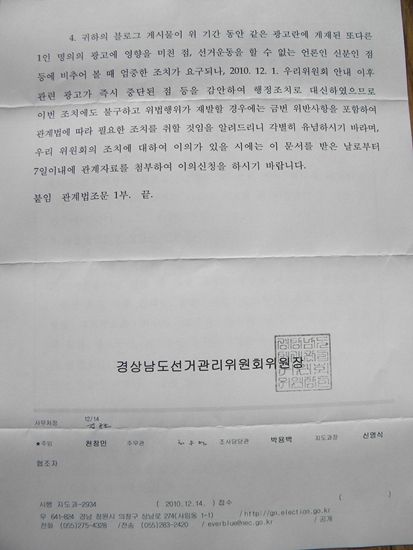 4. 귀하의 블로그 게시물이 위 기간 동안 같은 광고란에 게재된 또다른
1인 명의의 광고에 영향을 미친 점, 선거운동을 할 수 없는 언론인 신분인 점
등에 비추어 볼 때 엄중한 조치가 요구되나, 2010. 12. 1. 우리위원회 안내 이후
관련 광고가 즉시 중단된 점 등을 감안하여 행정조치로 대신하였으므로
이번 조치에도 불구하고 위법행위가 재발할 경우에는 금번 위반사항을 포함하여
관계법에 따라 필요한 조치를 취할 것임을 알려드리니 각별히 유념하시기 바라며,
우리 위원회의 조치에 대하여 이의가 있을 시에는 이 문서를 받은 날로부터
7일이내에 관계자료를 첨부하여 이의신청을 하시기 바랍니다.
붙임 관계법조문 1부. 끝.
경상남도선거관리위원회위원장
12/14
사무처장
★주임 천창민 주무관 조사담당관 박용백 지도과장 신영식
협조자
시행 지도과-2934 ( 2010.12.14. ) 접수 ( )
우 641-824 경남 창원시 의창구 상남로 274(사림동 1-1) / http://gn.election.go.kr
전화 (055)275-4328 /전송 (055)283-2420 / everblue@nec.go.kr / 공개